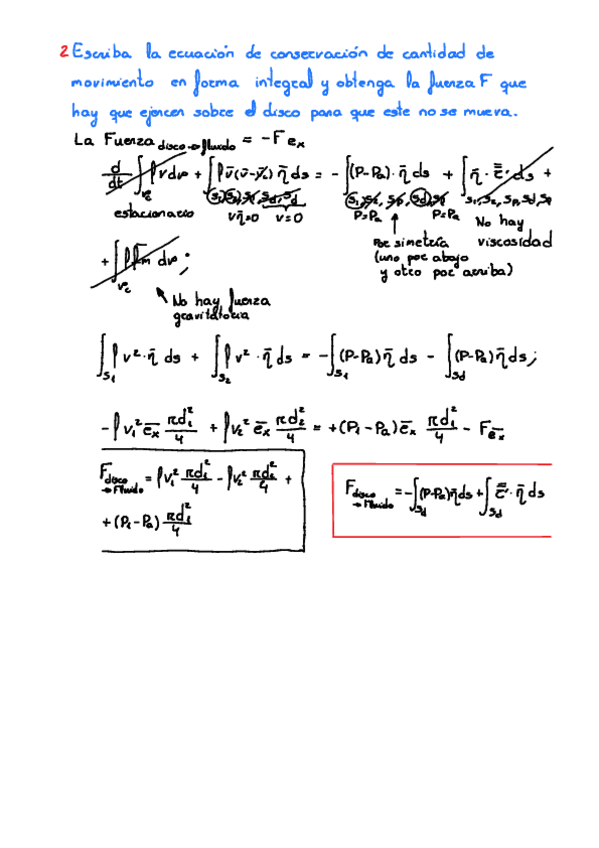 2 Escriba la ecuación de conservación de cantidad de
movimiento en forma integral y obtenga la fuerza F que
hay que ejercer sobre el disco para que este no se mueva.
La Fuerza disco→fluido = -F eₓ
d/dt ∫_Vc ρ v dv + ∫ ρ v̄ (v̄-v̄c) n̄ ds = - ∫ (P-Pa)·n̄ ds + ∫ n̄·τ̄' ds +
estacionario v n̄=0 v=0 P=Pa P=Pa No hay
Por simetría viscosidad
(uno por abajo
y otro por arriba)
+ ∫_Vc ρ f̄m dv ;
No hay fuerza
gravitatoria
∫_S₁ ρ v²·n̄ ds + ∫_S₂ ρ v²·n̄ ds = - ∫_S₁ (P-Pa) n̄ ds - ∫_Sd (P-Pa) n̄ ds;
-ρ v₁² ēx πd₁²/4 + ρ v₂² ēx πd₂²/4 = +(P₁-Pa) ēx πd₁²/4 - F ēx
F disco→Fluido = ρ v₁² πd₁²/4 - ρ v₂² πd₂²/4 +
+ (P₁-Pa) πd₁²/4
F disco→Fluido = - ∫_Sd (P-Pa) n̄ ds + ∫_Sd τ̄'·n̄ ds